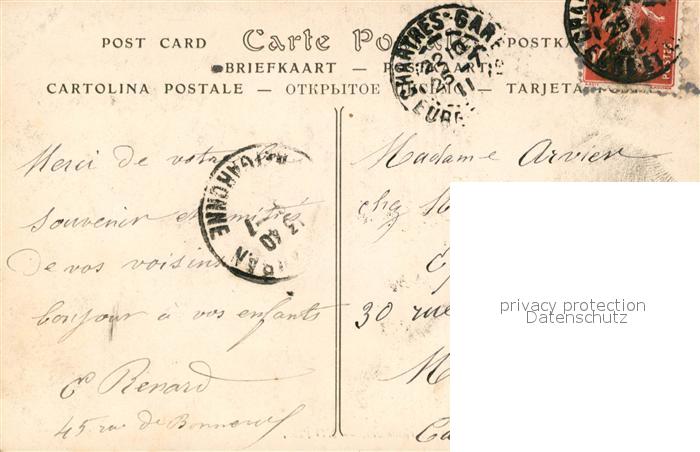 POST CARD Carte Postale POSTKA
BRIEFKAART — POSTKARTE
CARTOLINA POSTALE — ОТКРЫТОЕ — TARJETA POSTAL
CHARTRES-GARE
EURE
GARONNE
Merci de votre
souvenir et amitiés
De vos voisins
bonjour à vos enfants
E Renard
45 rue de
Madame Arvier
chez
30 rue
M
privacy protection
Datenschutz